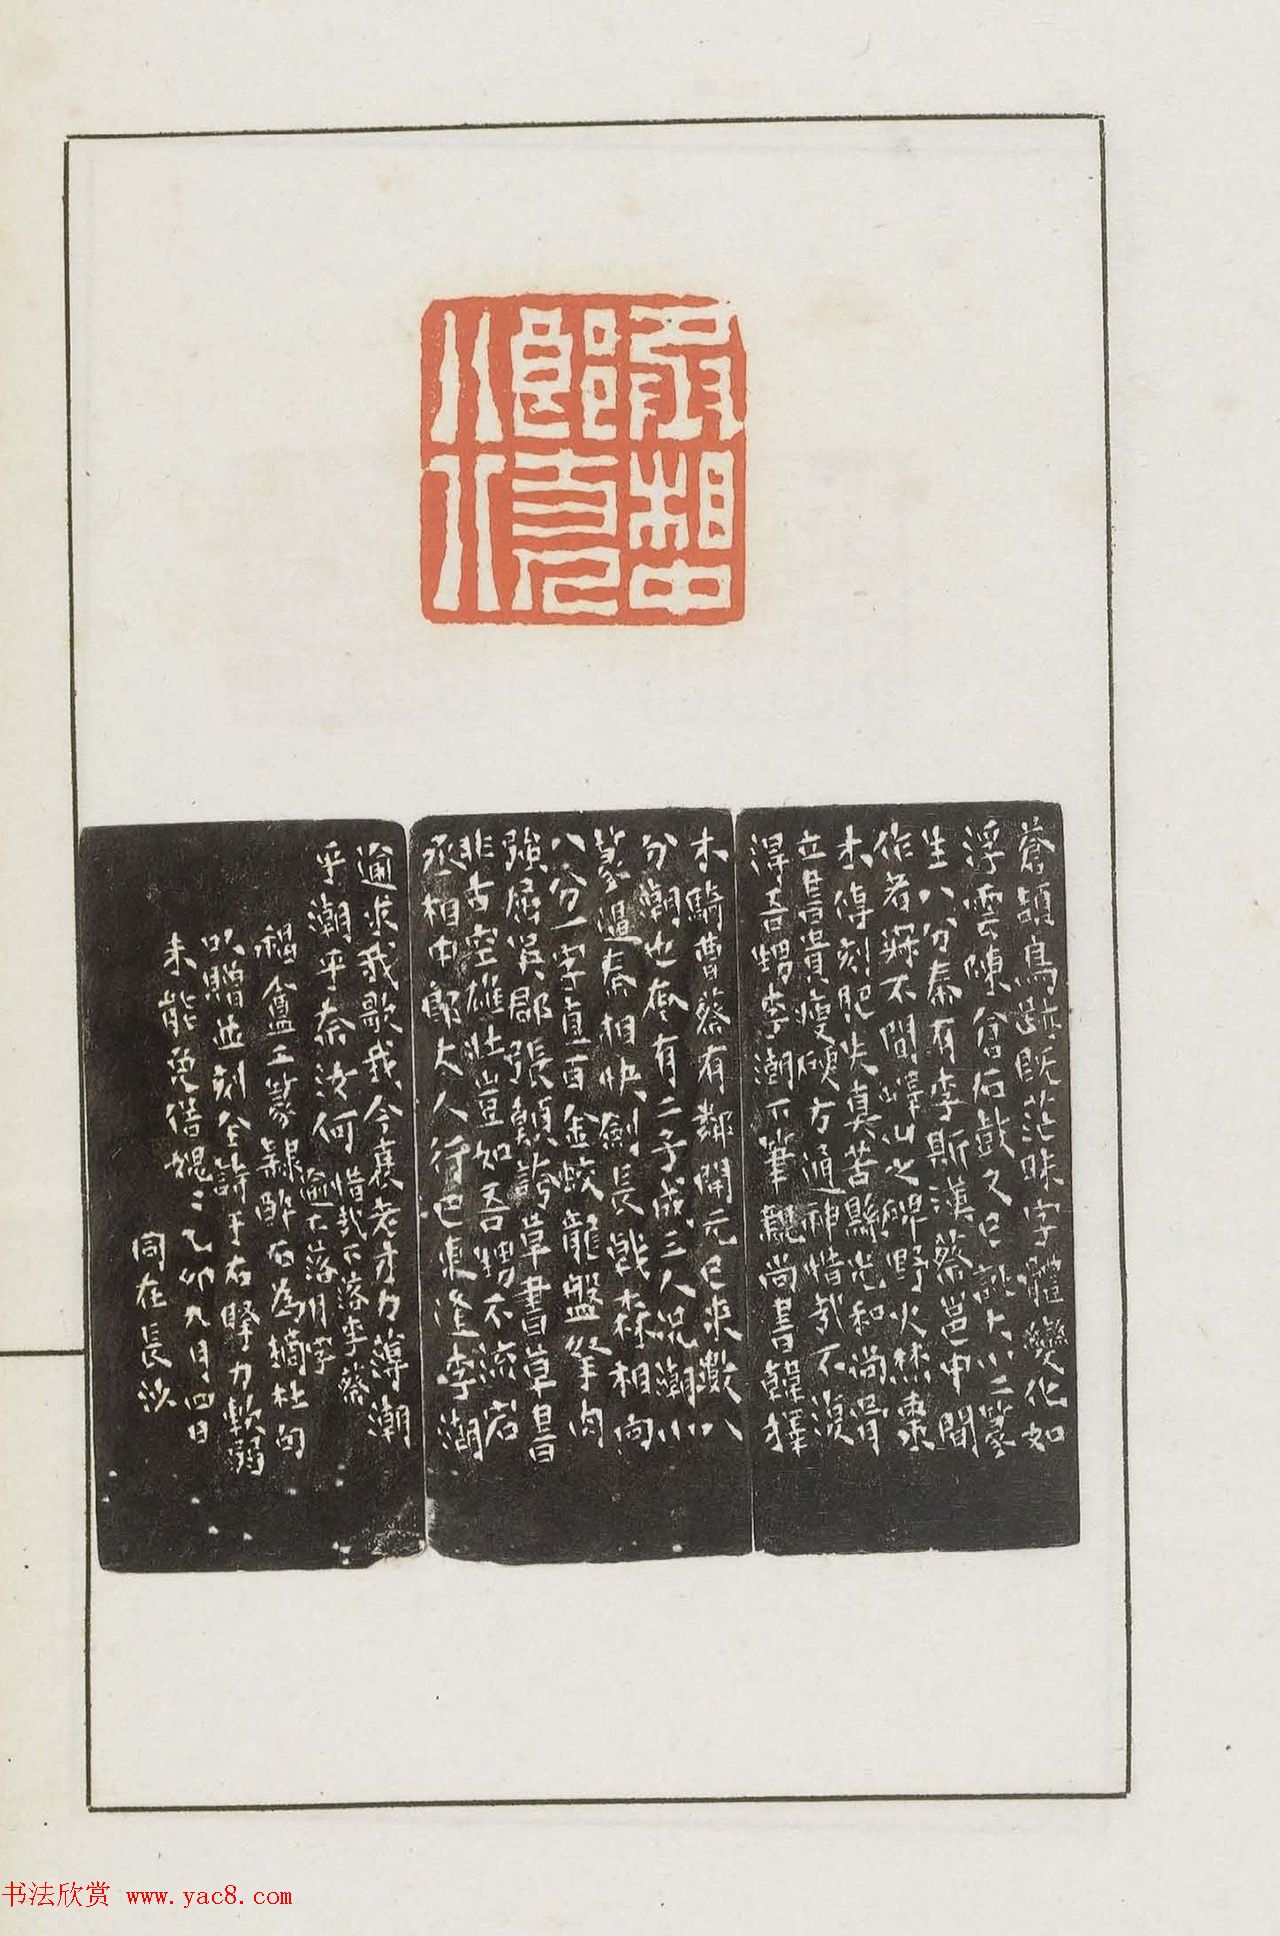 丞相中
郎丈人
行
蒼頡鳥跡既茫昧字體變化如
浮雲陳倉石鼓又已訛大小二篆
生八分秦有李斯漢蔡邕中間
作者寂不聞嶧山之碑野火焚棗
木傳刻肥失真苦縣光和尚骨
立書貴瘦硬方通神惜哉不復
得吾甥李潮下筆親尚書韓擇
木騎曹蔡有鄰開元已來數八
分潮也奄有二子成三人況潮小
篆逼秦相快劍長戟森相向
八分一字直百金蛟龍盤拏肉
強屈吳郡張顛誇草書草書
非古空雄壯豈如吾甥不流宕
丞相中郎丈人行巴東逢李潮
逾求我歌我今衰老才力薄潮
乎潮乎奈汝何
惜哉下落李蔡
逾下落月字
褐盦工篆隸為摘杜句
以贈並刻全詩于右擘力軟弱
未能免俗媿二乙卯九月四日
同在長沙
书法欣赏 www.yac8.com